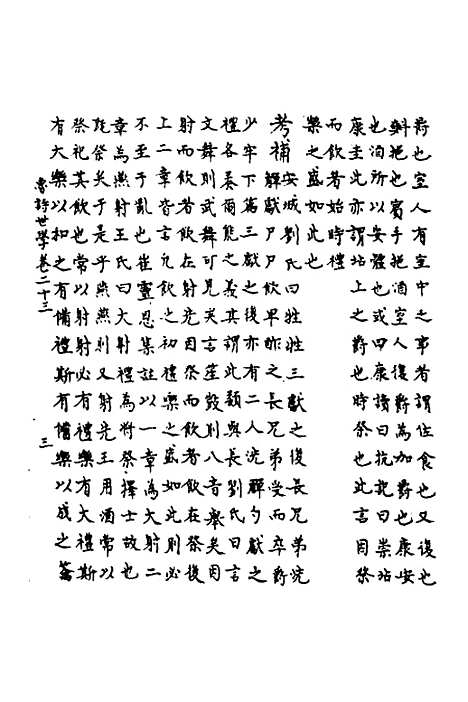 爵也室人有室中之事者謂佐食也又復也
斟挹也賓手挹酒室人復爵為加爵也康安
也酒所以安體也或曰康讀曰抗記曰崇坫
康圭此亦謂坫上之爵也時祭也此言因祭
而飲者始時禮
樂之盛如此也
考補安城劉氏曰牲牲三獻之後長兄弟洗
觶獻尸尸飲畢亦之長兄弟受而卒爵
少牢下篇三獻之後亦有二人洗觶勺獻之
禮各奏爾能之義其謂此類與長劉氏曰言
文舞則武舞可見矣言笙鼓則八音舉矣因
射而飲者飲在射先因祭而飲者飲在祭後
上二章皆言凡飲之初禮樂之盛如此則必
不至于亂也崔靈恩集註以一章為大射二
章為燕射王氏曰大射禮為將祭擇士故也
既祭矣于是乎燕射則又射先王用大酒常以
祭祀其飲也常以射射則有禮樂有大禮斯
有大樂以和之有備禮斯必有備樂以成之
魯詩世學卷二十三
三